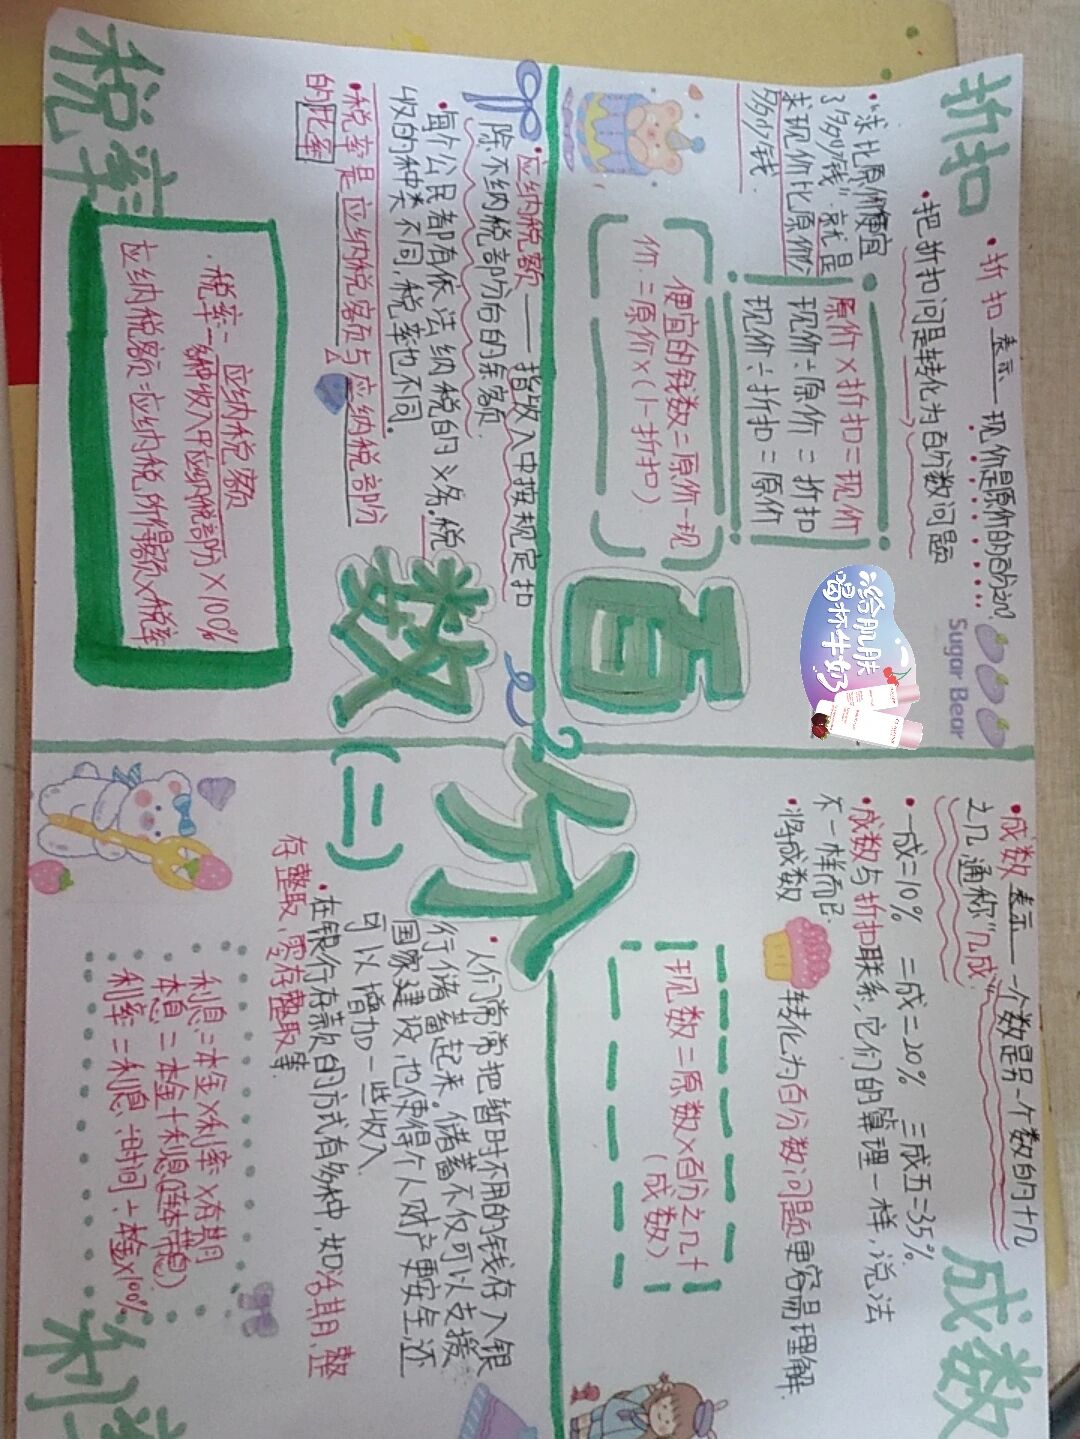 折扣
•折扣表示——现价是原价的百分之几?
•把折扣问题转化为百分数问题
•"求比原价便宜
了多少钱",就是
求现价比原价少
多少钱.
原价×折扣=现价
现价÷原价=折扣
现价÷折扣=原价
便宜的钱数=原价-现
价=原价×(1-折扣)
Sugar Bear
给肌肤
喝杯牛奶
成数
•成数表示——一个数是另一个数的十几
之几,通称"几成"
•一成=10% 二成=20% 三成五=35%
•成数与折扣联系,它们的算理一样,说法
不一样而已.
•将成数转化为百分数问题更容易理解.
现数=原数×百分之几十
(成数)
百
分
数
(二)
税率
•应纳税额——指收入中按规定扣
除不纳税部分的余额.
•每个公民都有依法纳税的义务.税
收的种类不同,税率也不同.
•税率是应纳税额与应纳税部分
的比率
•税率=应纳税额
各种收入中应纳税部分×100%
应纳税额=应纳税所得额×税率
利率
•人们常常把暂时不用的钱存入银
行储蓄起来.储蓄不仅可以支援
国家建设,也使得个人财产更安全,还
可以增加一些收入.
•在银行存款的方式有多种,如活期,整
存整取,零存整取等.
利息=本金×利率×存期
本息=本金+利息
利率=利息÷时间÷本金×100%